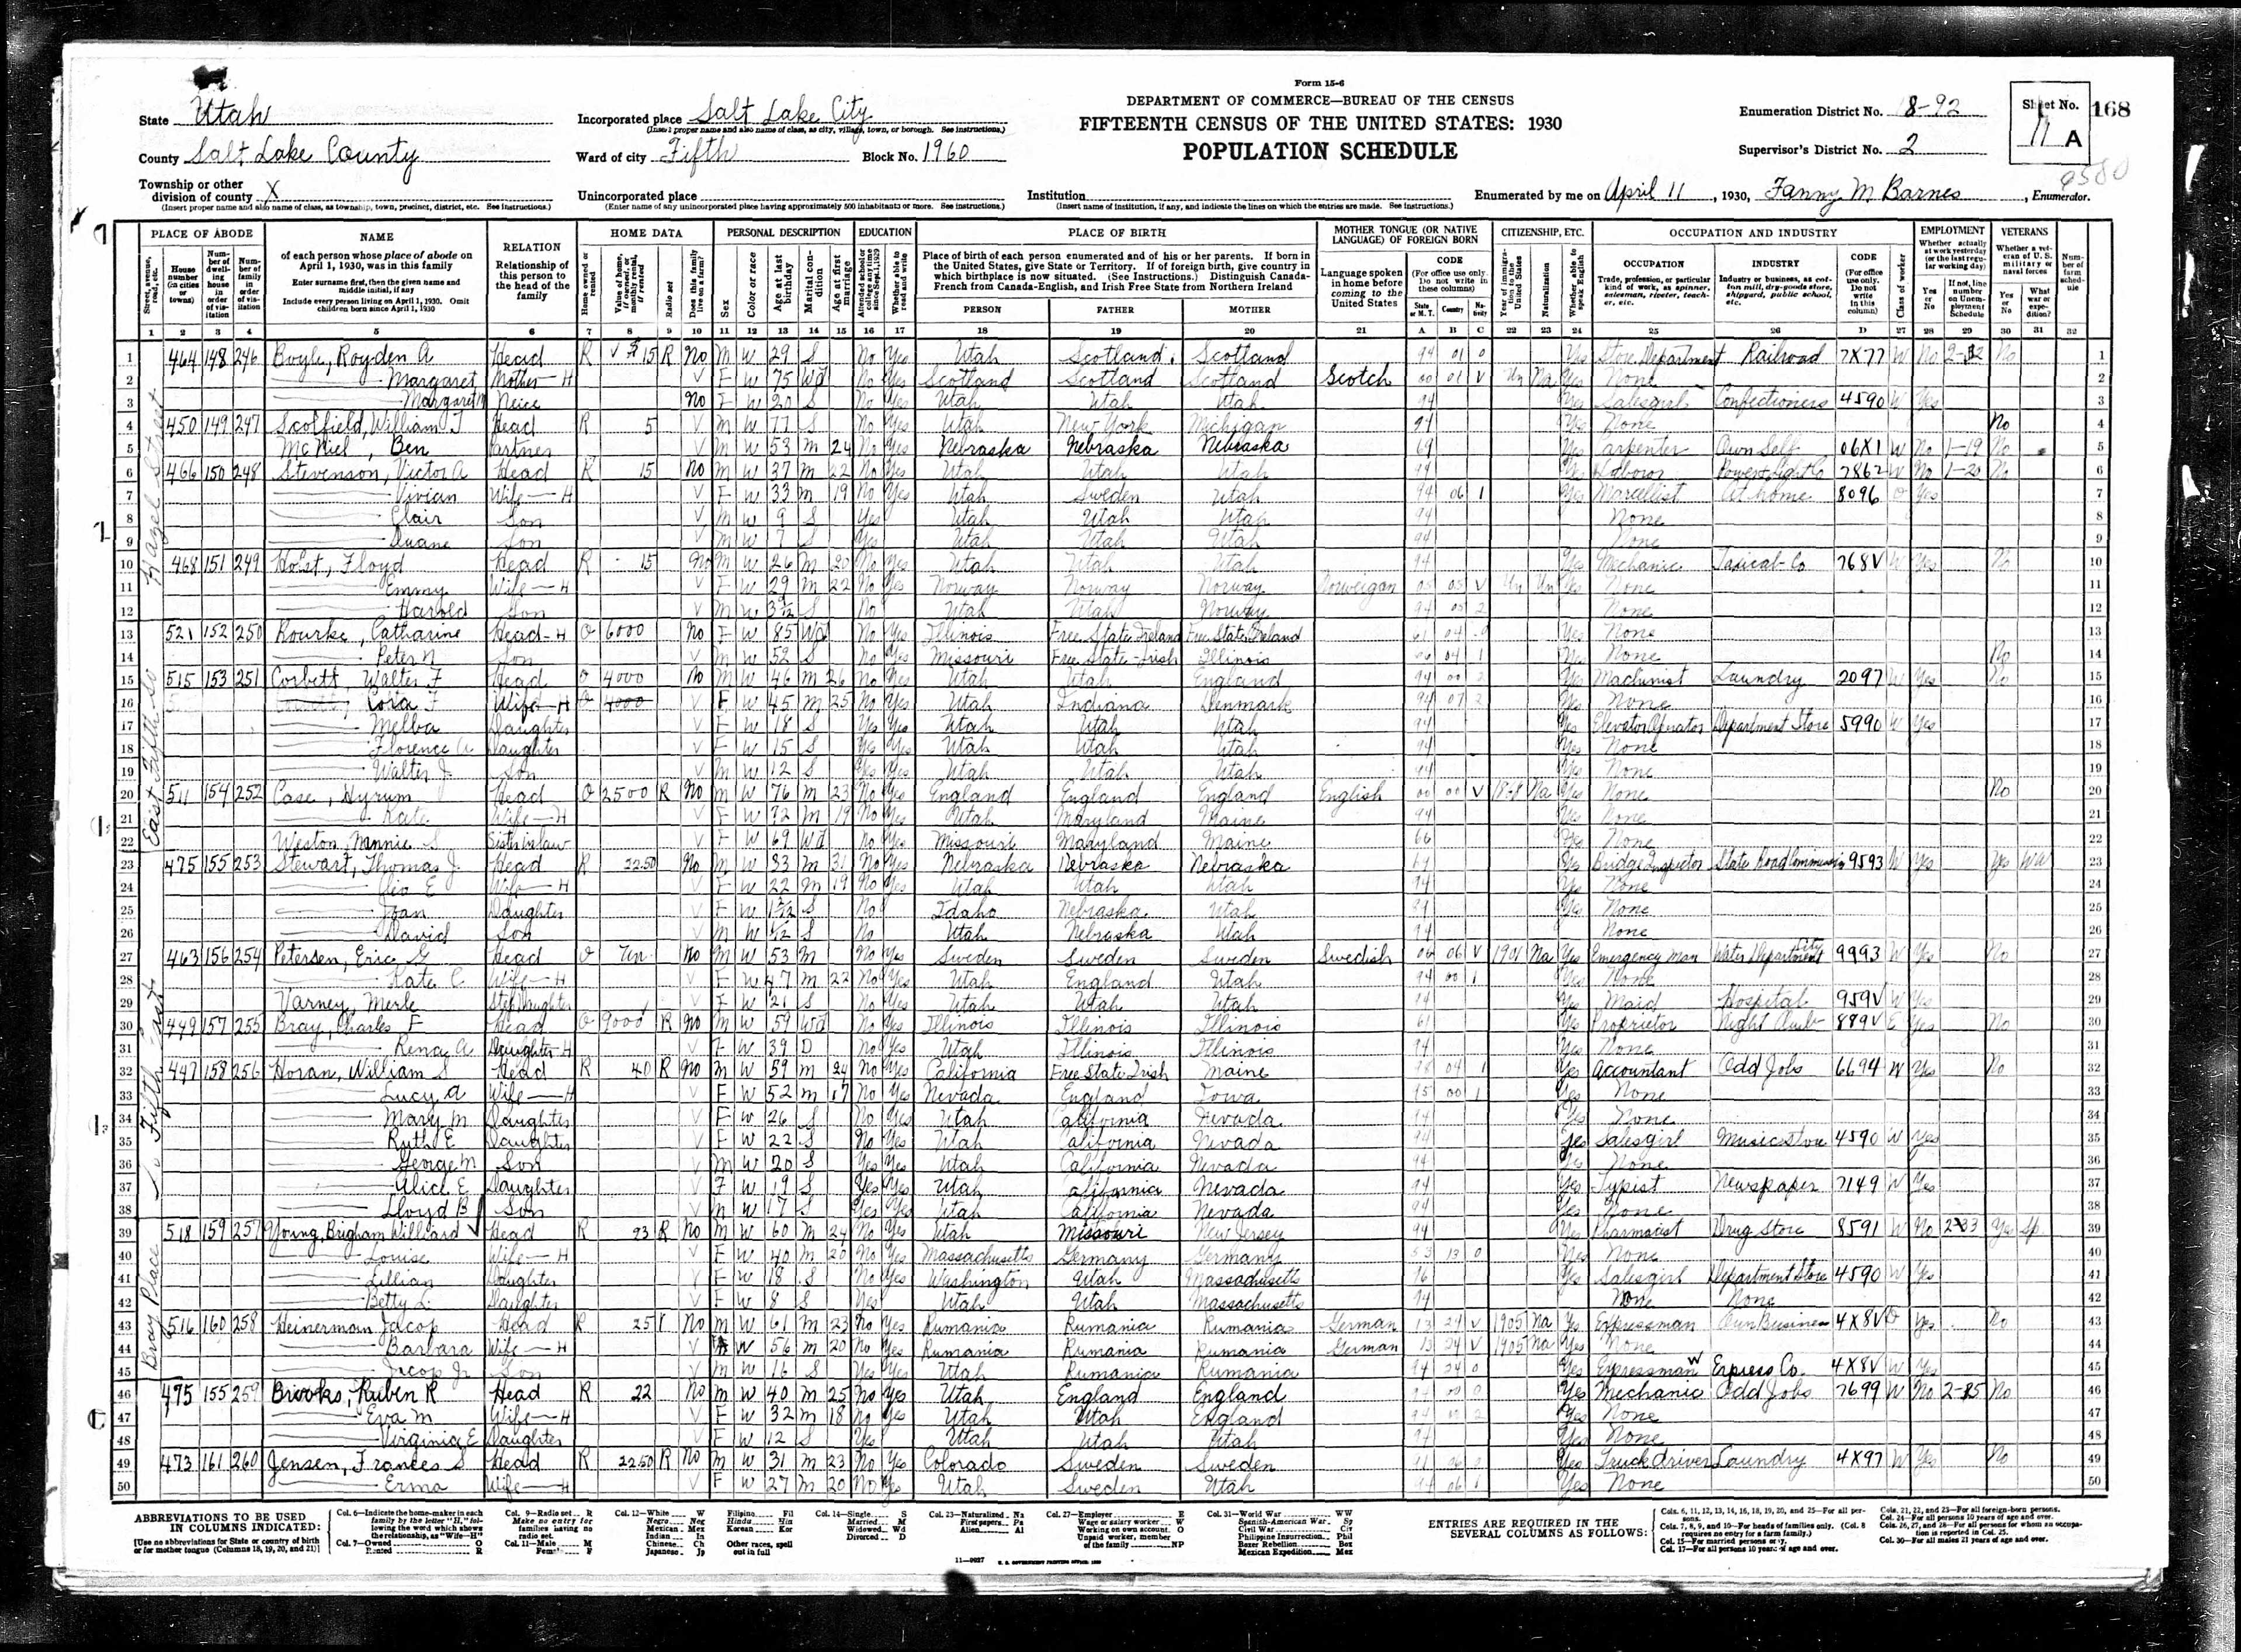 Form 15-6
DEPARTMENT OF COMMERCE—BUREAU OF THE CENSUS
FIFTEENTH CENSUS OF THE UNITED STATES: 1930
POPULATION SCHEDULE
State Utah
County Salt Lake County
Township or other division of county X
(Insert proper name and also name of class, as township, town, precinct, district, etc. See instructions.)
Incorporated place Salt Lake City
(Insert proper name and also name of class, as city, village, town, or borough. See instructions.)
Ward of city Fifth Block No. 1960
Unincorporated place
(Enter name of any unincorporated place having approximately 500 inhabitants or more. See instructions.)
Institution
(Insert name of institution, if any, and indicate the lines on which the entries are made. See instructions.)
Enumeration District No. 18-92
Supervisor's District No. 2
Sheet No. 11 A
168
Enumerated by me on April 11, 1930, Fanny M Barnes, Enumerator.
PLACE OF ABODE NAME RELATION HOME DATA PERSONAL DESCRIPTION EDUCATION PLACE OF BIRTH MOTHER TONGUE (OR NATIVE LANGUAGE) OF FOREIGN BORN CITIZENSHIP, ETC. OCCUPATION AND INDUSTRY EMPLOYMENT VETERANS
of each person whose place of abode on April 1, 1930, was in this family
Enter surname first, then the given name and middle initial, if any
Include every person living on April 1, 1930. Omit children born since April 1, 1930
Relationship of this person to the head of the family
Place of birth of each person enumerated and of his or her parents. If born in the United States, give State or Territory. If of foreign birth, give country in which birthplace is now situated. (See Instructions.) Distinguish Canada-French from Canada-English, and Irish Free State from Northern Ireland
PERSON FATHER MOTHER
Language spoken in home before coming to the United States
OCCUPATION INDUSTRY CODE
1 464 148 246 Boyle, Royden A Head R $15 R No M W 29 S No Yes Utah Scotland Scotland 94 01 0 Yes Store Department Railroad 7X77 W No No
2 Margaret Mother-H V F W 75 Wd No Yes Scotland Scotland Scotland Scotch 00 01 V Un Na Yes None
3 Margaret Neice No F W 20 S No Yes Utah Utah Utah 94 Yes Salesgirl Confectioners 4590 W Yes
4 450 149 247 Scolfield, William J Head R 5 V M W 77 S No Yes Utah New York Michigan 94 Yes None No
5 McNiel, Ben Partner V M W 53 M 24 No Yes Nebraska Nebraska Nebraska 69 Yes Carpenter Own Self 06X1 W No 1-19 No
6 466 150 248 Stevenson, Victor A Head R 15 No M W 37 M 22 No Yes Utah Utah Utah 94 Yes 7862 W No 1-20 No
7 Vivian Wife-H V F W 33 M 19 No Yes Utah Sweden Utah 94 06 1 Yes Marcellist At home 8096 O Yes
8 Clair Son V M W 9 S Yes Utah Utah Utah 94 None
9 Duane Son V M W 7 S Yes Utah Utah Utah 94 None
10 468 151 249 Holst, Floyd Head R 15 No M W 26 M 20 No Yes Utah Utah Utah 94 Yes Mechanic Taxicab Co 768V W Yes No
11 Emmy Wife-H V F W 29 M 22 No Yes Norway Norway Norway Norweigan 05 05 V Un Un Yes None
12 Harold Son V M W S No Utah Utah Norway 94 05 2 None
13 521 152 250 Rourke, Catharine Head-H O 6000 No F W 85 Wd No Yes Illinois Free State Ireland Free State Ireland 61 04 0 Yes None
14 Peter N Son V M W 52 S No Yes Missouri Free State-Irish Illinois 66 04 1 Yes None No
15 515 153 251 Corbett, Walter F Head O 4000 No M W 46 M 26 No Yes Utah Utah England 94 00 2 Yes Machinist Laundry 2097 W Yes No
16 Cora F Wife-H O 4000 V F W 45 M 25 No Yes Utah Indiana Denmark 94 07 2 Yes None
17 Melba Daughter V F W 18 S Yes Yes Utah Utah Utah 94 Yes Elevator Operator Department Store 5990 W Yes
18 Florence A Daughter V F W 15 S Yes Yes Utah Utah Utah 94 Yes None
19 Walter J Son V M W 12 S Yes Yes Utah Utah Utah 94 Yes None
20 511 154 252 Case, Hyrum Head O 2500 R No M W 76 M 23 No Yes England England England English 00 00 V Na Yes None No
21 Kate Wife-H V F W 72 M 19 No Yes Utah Maryland Maine 94 Yes None
22 Weston, Minnie S Sister in law V F W 69 Wd No Yes Missouri Maryland Maine 66 Yes None
23 475 155 253 Stewart, Thomas J. Head R 22.50 No M W 33 M 31 No Yes Nebraska Nebraska Nebraska 69 Yes Bridge Inspector State Road Commission 9593 W Yes Yes WW
24 Wife-H V F W 22 M 19 No Yes Utah Utah Utah 94 Yes None
25 Joan Daughter V F W S No Idaho Nebraska Utah Yes None
26 David Son V M W S No Utah Nebraska Utah 94 None
27 463 156 254 Petersen, Eric G Head O Un No M W 53 M No Yes Sweden Sweden Sweden Swedish 06 06 V 1901 Na Yes Emergency Man City Water Department 9993 W Yes No
28 Kate C Wife-H V F W 47 M 22 No Yes Utah England Utah 94 00 1 Yes None
29 Varney, Merle Step Daughter V F W 21 S No Yes Utah Utah Utah 94 Yes Maid Hospital 959V W Yes
30 449 157 255 Bray, Charles F Head O 9000 R No M W 59 Wd No Yes Illinois Illinois Illinois 61 Yes Proprietor Night Club 889V E Yes No
31 Rena A Daughter-H V F W 39 D No Yes Utah Illinois Illinois 94 Yes None
32 447 158 256 Horan, William S Head R 40 R No M W 59 M 24 No Yes California Free State Irish Maine 04 1 Yes Accountant Odd Jobs 6694 W Yes No
33 Lucy A Wife-H V F W 52 M 17 No Yes Nevada England Iowa 00 1 Yes None
34 Mary M Daughter V F W 26 S No Yes Utah California Nevada 94 Yes None
35 Ruth E Daughter V F W 22 S No Yes Utah California Nevada 94 Yes Salesgirl Music Store 4590 W Yes
36 George M Son V M W 20 S Yes Yes Utah California Nevada 94 Yes None
37 Alice E Daughter V F W 19 S Yes Yes Utah California Nevada 94 Yes Typist Newspaper 7149 W Yes
38 Lloyd B Son V M W 17 S Yes Yes Utah California Nevada 94 Yes None
39 518 159 257 Young, Brigham Willard Head R 23 R No M W 60 M 24 No Yes Utah Missouri New Jersey 94 Yes Pharmacist Drug Store 8591 W No Yes Sp
40 Louise Wife-H V F W 40 M 20 No Yes Massachusetts Germany Germany 53 13 0 Yes None
41 Lillian Daughter V F W 18 S No Yes Washington Utah Massachusetts Yes Salesgirl Department Store 4590 W Yes
42 Betty L. Daughter V F W 8 S Yes Utah Utah Massachusetts 94 None None
43 516 160 258 Heinerman Jacop Head R 25 r No M W 61 M 23 No Yes Rumania Rumania Rumania German 13 24 V 1905 Na Yes Expressman Own Business 4X8V O Yes No
44 Barbara Wife-H V W 56 M 20 No Yes Rumania Rumania Rumania German 13 24 V 1905 Na Yes None
45 Jacop Jr Son V M W 16 S Yes Yes Utah Rumania Rumania 94 24 0 Yes Expressman W Express Co. 4X8V W Yes
46 475 155 259 Brooks, Ruben R Head R 22 No M W 40 M 25 No Yes Utah England England 94 00 0 Yes Mechanic Odd Jobs 7699 W No No
47 Eva M Wife-H V F W 32 M 18 No Yes Utah Utah England 94 Yes None
48 Virginia E Daughter V F W 12 S Yes Utah Utah Utah 94 Yes None
49 473 161 260 Jensen, Frances S Head R 22.50 R No M W 31 M 23 No Yes Colorado Sweden Sweden Yes Truck driver Laundry 4X97 W Yes No
50 Erma Wife-H V F W 27 M 20 No Yes Utah Sweden Utah 94 06 1 Yes None
Hazel Street
East Fifth So
So Fifth East
Bray Place
ABBREVIATIONS TO BE USED IN COLUMNS INDICATED:
[Use no abbreviations for State or country of birth or for mother tongue (Columns 18, 19, 20, and 21)]
Col. 6—Indicate the home-maker in each family by the letter "H," following the word which shows the relationship, as "Wife—H"
Col. 7—Owned O Rented R
Col. 9—Radio set R
Make no entry for families having no radio set.
Col. 11—Male M Female F
Col. 12—White W Negro Neg Mexican Mex Indian In Chinese Ch Japanese Jp Filipino Fil Hindu Hin Korean Kor Other races, spell out in full
Col. 14—Single S Married M Widowed Wd Divorced D
Col. 23—Naturalized Na First papers Pa Alien Al
Col. 27—Employer E Wage or salary worker W Working on own account O Unpaid worker, member of the family NP
Col. 31—World War WW Spanish-American War Sp Civil War Civ Philippine Insurrection Phil Boxer Rebellion Box Mexican Expedition Mex
ENTRIES ARE REQUIRED IN THE SEVERAL COLUMNS AS FOLLOWS:
Cols. 6, 11, 12, 13, 14, 16, 18, 19, 20, and 25—For all persons.
Cols. 7, 8, 9, and 10—For heads of families only. (Col. 8 requires no entry for a farm family.)
Col. 15—For married persons only.
Col. 17—For all persons 10 years of age and over.
Cols. 21, 22, and 23—For all foreign-born persons.
Col. 24—For all persons 10 years of age and over.
Cols. 26, 27, and 28—For all persons for whom an occupation is reported in Col. 25.
Col. 30—For all males 21 years of age and over.
U. S. GOVERNMENT PRINTING OFFICE